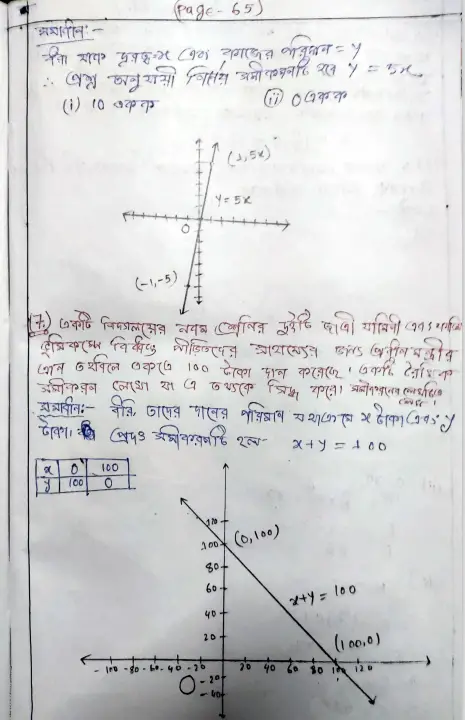 (Page - 65)
সমাধান:-
ধরা যাক দূরত্ব = x এবং কাজের পরিমান = y
∴ প্রশ্ন অনুযায়ী নির্ণেয় সমীকরণটি হবে y = 5x
(i) 10 একক (ii) 0 একক
(1, 5x)
y = 5x
0
(-1, -5)
(7.) একটি বিদ্যালয়ের নবম শ্রেণির দুইটি ছাত্রী যামিনী এবং
ভূমিকম্পে পীড়িতদের সাহায্যের জন্য প্রধানমন্ত্রীর
ত্রান তহবিলে একত্রে 100 টাকা দান করেছে। একটি রৈখিক
সমীকরণ লেখো যা এ তথ্যকে সিদ্ধ করে। সমীকরণের লেখচিত্র
সমাধান:- ধরি তাদের দানের পরিমান যথাক্রমে x টাকা এবং y
টাকা। প্রদত্ত সমীকরণটি হল- x+y = 100
x 0 100
y 100 0
120
100 (0, 100)
80
60 x+y = 100
40
20 (100, 0)
-100 -80 -60 -40 -20 20 40 60 80 100 120
0 -20
-40